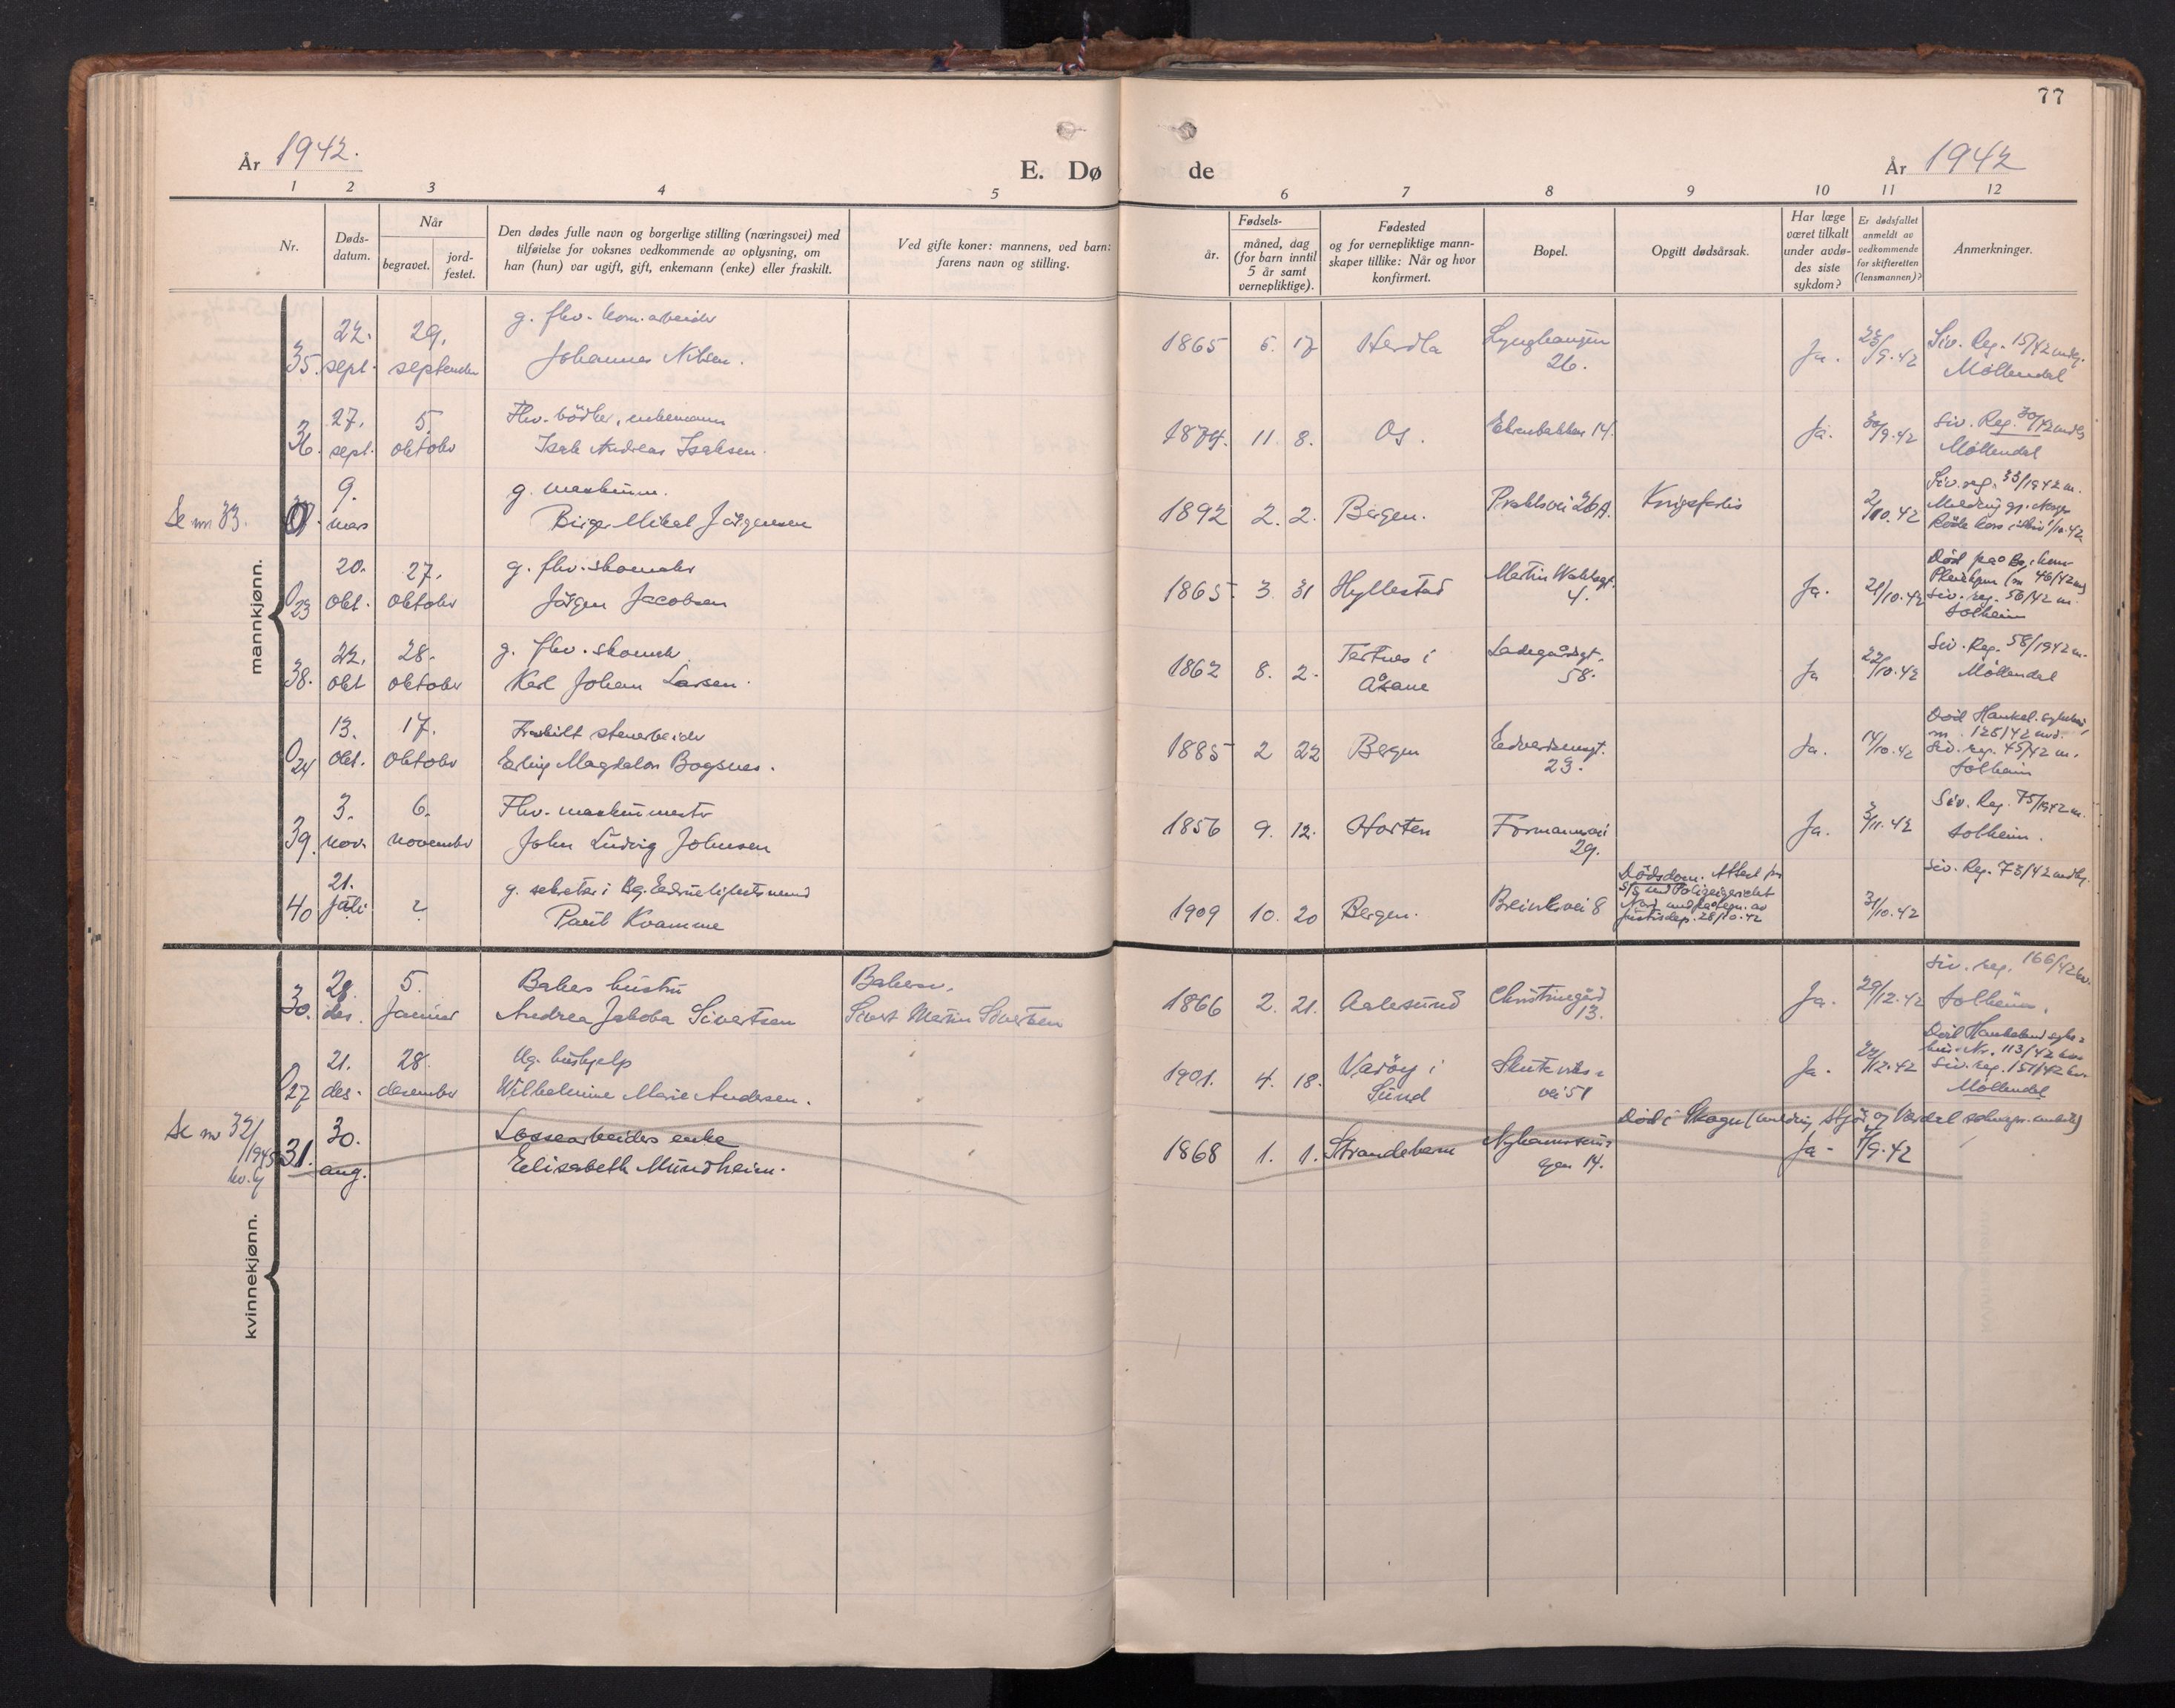 77
År 1942.
E. Døde
År 1942
1 2 3 4 5 6 7 8 9 10 11 12
Nr.
Døds-
datum.
Når
begravet.
jord-
festet.
Den dødes fulle navn og borgerlige stilling (næringsvei) med
tilføielse for voksnes vedkommende av oplysning, om
han (hun) var ugift, gift, enkemann (enke) eller fraskilt.
Ved gifte koner: mannens, ved barn:
farens navn og stilling.
Fødsels-
år.
måned, dag
(for barn inntil
5 år samt
vernepliktige).
Fødested
og for vernepliktige mann-
skaper tillike: Når og hvor
konfirmert.
Bopel.
Opgitt dødsårsak.
Har læge
været tilkalt
under avdø-
des siste
sykdom?
Er dødsfallet
anmeldt av
vedkommende
for skifteretten
(lensmannen)?
Anmerkninger.
mannkjønn.
22. 29. g. fhv. kom.arbeider
35. sept. september Johannes Nilsen. 1865 5. 17 Herdla Lynghaugen 26. Ja. Siv. Reg. 15/42
Møllendal
27. 5. Fhv. bødker, enkemann
36. sept. oktober Isak Andreas Isaksen. 1874. 11. 8. Os. Ja. 30/9.42 Siv. Reg. 30/42
Møllendal
Se nr 33. 9. g. maskinm.
mars Birger Mikal Jørgensen 1892 2. 2. Bergen. 26A. Krigsforlis 2/10.42 Siv. reg. 33/1942 m.
Melding gj. Norges
Røde Kors
20. 27. g. fhv. skomaker
023 okt. oktober Jørgen Jacobsen 1865 3. 31 Hyllestad Martin Wahlsgt. 4. Ja. 21/10.42 Død på
Siv. reg. 56/42 m.
Solheim
22. 28. g. fhv. skomak.
38. okt oktober Karl Johan Larsen. 1862 8. 2. Tertnes i Åsane Ladegårdsgt. 58. Ja 22/10.42 Siv. Reg. 58/1942 m.
Møllendal
13. 17. Fraskilt stenarbeider
024 okt. oktober Erling Magdalon Bogsnes. 1885 2 22 Bergen Edvardsensgt. 23. Ja. 14/10.42 Død Haukel. sykehus,
nr. 125/42
Siv. reg. 45/42 m.
Solheim
3. 6. Fhv. maskinmester
39. nov. november John Ludvig Johnsen 1856 9. 12. Horten Formannsvei 29. Ja. 3/11.42 Siv. Reg. 75/1942 m.
Solheim.
21. g. sekretær i Bg. Edruelighetsnemnd
40 juli ? Paul Kvamme 1909 10. 20 Bergen. 8 Dødsdom. Attest fra
28/10.42 31/10.42 Siv. Reg. 73/42
kvinnekjønn.
28. 5. Bakers hustru Bakersv.
30. des. januar Andrea Jakoba Sivertsen Sivert Martin Sivertsen 1866 2. 21. Aalesund Christinegård 13. Ja. 29/12.42 Siv. reg. 166/42 kv.
Solheim.
21. 28. Ug. hushjelp
027 des. desember Wilhelmine Marie Andersen. 1901. 4. 18. Vardøy i Sund Skuteviks-
vei 51 Ja. 22/12.42 Død Haukeland syke-
hus Nr. 113/42 kv.
Siv. reg. 151/42 kv.
Møllendal
Se nr 32/1945 30. Lossearbeiders enke
31. aug. Elisabeth Mundheim. 1868 1. 1. Strandebarm 14. Ja. 9.42 Død i Skogn